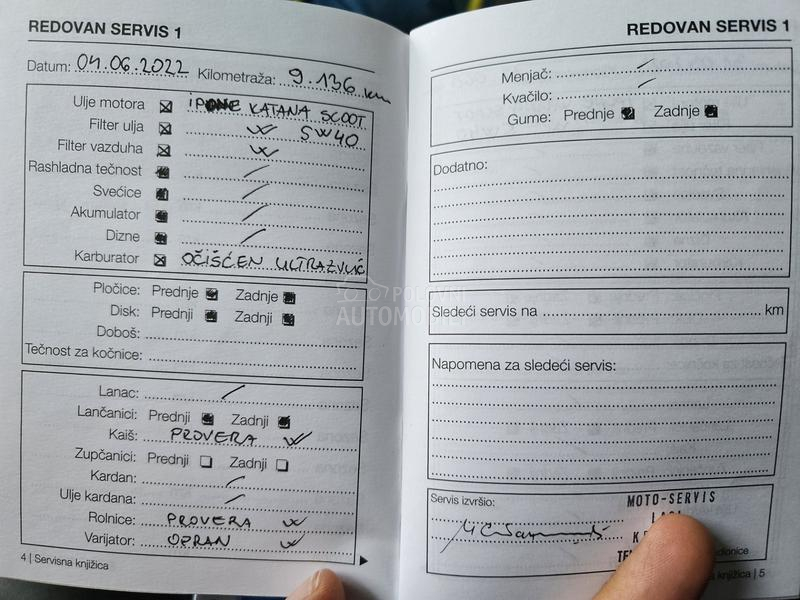 REDOVAN SERVIS 1
Datum: 04.06.2022 Kilometraža: 9.136 km
Ulje motora IPONE KATANA SCOOT
Filter ulja 5W40
Filter vazduha
Rashladna tečnost
Svećice
Akumulator
Dizne
Karburator OČIŠĆEN ULTRAZVUČ
Pločice: Prednje Zadnje
Disk: Prednji Zadnji
Doboš:
Tečnost za kočnice:
Lanac:
Lančanici: Prednji Zadnji
Kaiš: PROVERA
Zupčanici: Prednji Zadnji
Kardan:
Ulje kardana:
Rolnice: PROVERA
Varijator: OPRAN
4 | Servisna knjižica
REDOVAN SERVIS 1
Menjač:
Kvačilo:
Gume: Prednje Zadnje
Dodatno:
Sledeći servis na km
Napomena za sledeći servis:
Servis izvršio:
MOTO-SERVIS
knjižica | 5
POLOVNI
AUTOMOBILI